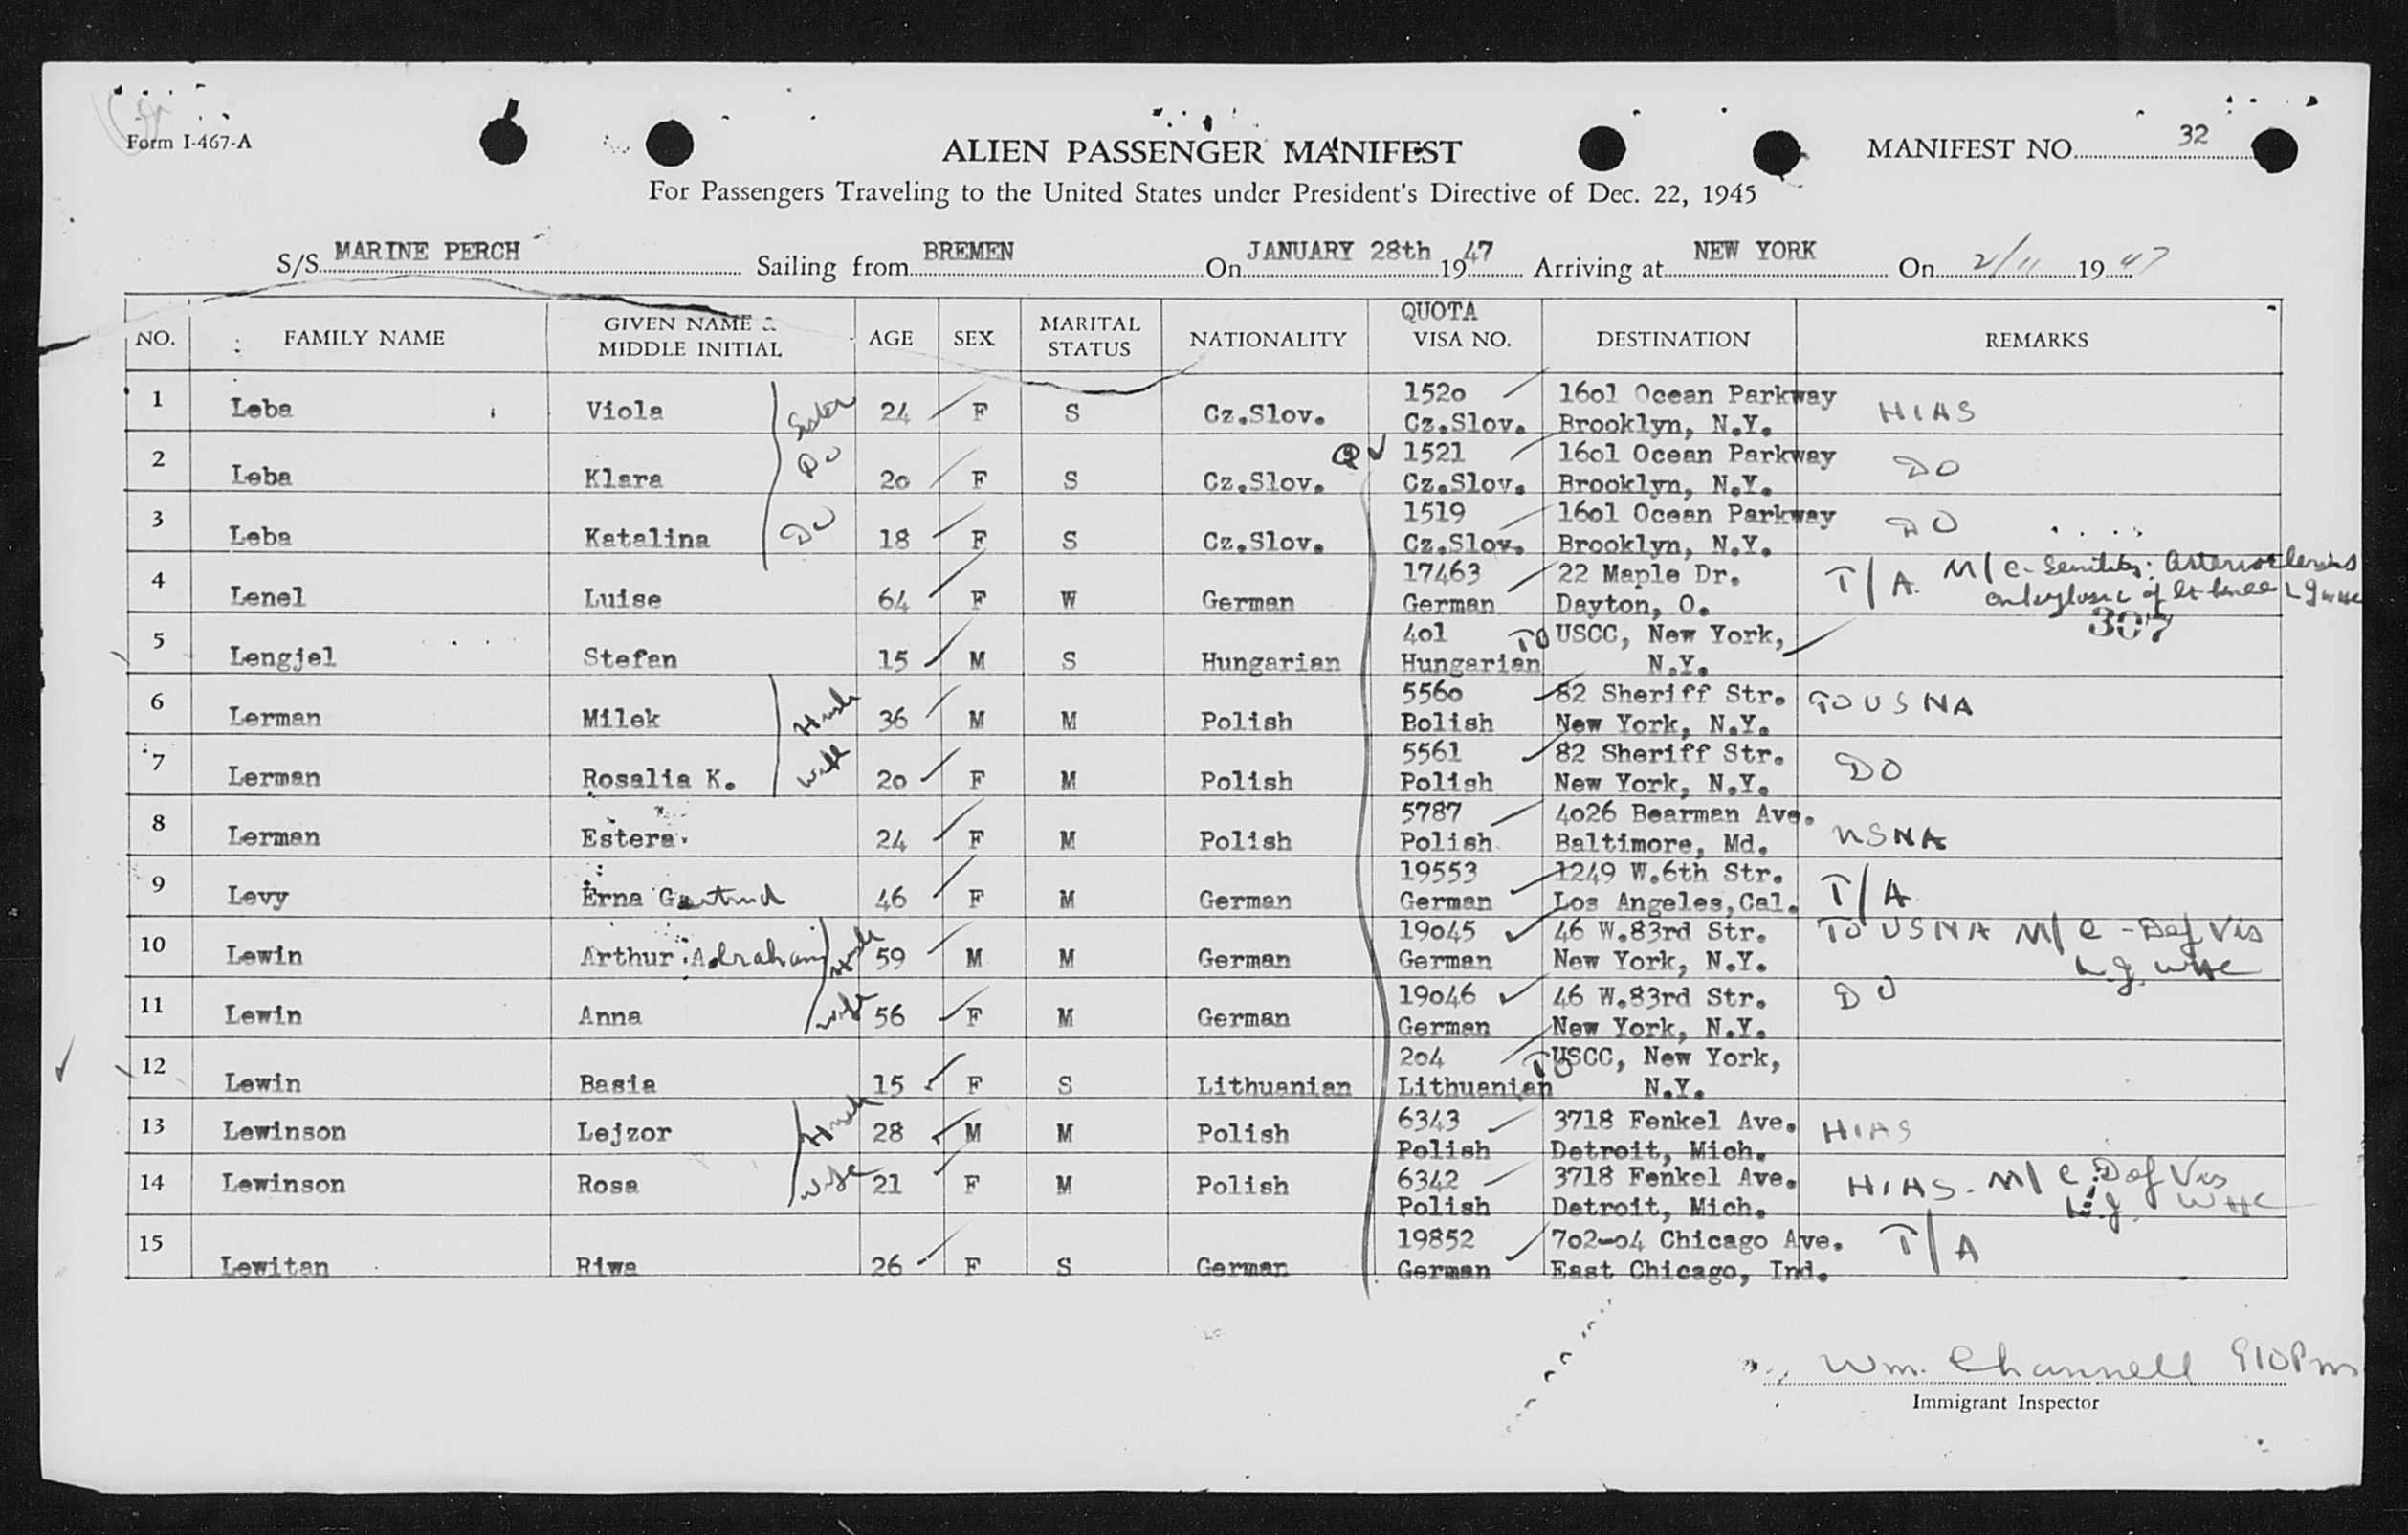 Form I-467-A
ALIEN PASSENGER MANIFEST
MANIFEST NO. 32
For Passengers Traveling to the United States under President's Directive of Dec. 22, 1945
S/S MARINE PERCH Sailing from BREMEN On JANUARY 28th 1947 Arriving at NEW YORK On 2/11 1947
NO. FAMILY NAME GIVEN NAME & MIDDLE INITIAL AGE SEX MARITAL STATUS NATIONALITY QUOTA VISA NO. DESTINATION REMARKS
1 Leba Viola Sister 24 F S Cz.Slov. 1520 Cz.Slov. 1601 Ocean Parkway Brooklyn, N.Y. HIAS
2 Leba Klara Do 20 F S Cz.Slov. Q 1521 Cz.Slov. 1601 Ocean Parkway Brooklyn, N.Y. DO
3 Leba Katalina Do 18 F S Cz.Slov. 1519 Cz.Slov. 1601 Ocean Parkway Brooklyn, N.Y. DO
4 Lenel Luise 64 F W German 17463 German 22 Maple Dr. Dayton, O. T/A M/C - Senility: Arteriosclerosis of lt knee
307
5 Lengjel Stefan 15 M S Hungarian 401 Hungarian TO USCC, New York, N.Y.
6 Lerman Milek Husb 36 M M Polish 5560 Bolish 82 Sheriff Str. New York, N.Y. TO USNA
7 Lerman Rosalia K. Wife 20 F M Polish 5561 Polish 82 Sheriff Str. New York, N.Y. DO
8 Lerman Estera 24 F M Polish 5787 Polish 4026 Bearman Ave. Baltimore, Md. USNA
9 Levy Erna Gertrud 46 F M German 19553 German 1249 W.6th Str. Los Angeles, Cal. T/A
10 Lewin Arthur Abraham Husb 59 M M German 19045 German 46 W.83rd Str. New York, N.Y. TO USNA M/C - Def Vis L.g. WHC
11 Lewin Anna Wife 56 F M German 19046 German 46 W.83rd Str. New York, N.Y. DO
12 Lewin Basia 15 F S Lithuanian 204 Lithuanian TO USCC, New York, N.Y.
13 Lewinson Lejzor Husb 28 M M Polish 6343 Polish 3718 Fenkel Ave. Detroit, Mich. HIAS
14 Lewinson Rosa Wife 21 F M Polish 6342 Polish 3718 Fenkel Ave. Detroit, Mich. HIAS. M/C Def Vis L.g. WHC
15 Lewitan Riwa 26 F S German 19852 German 702-04 Chicago Ave. East Chicago, Ind. T/A
Wm. Channell 910Pm
Immigrant Inspector